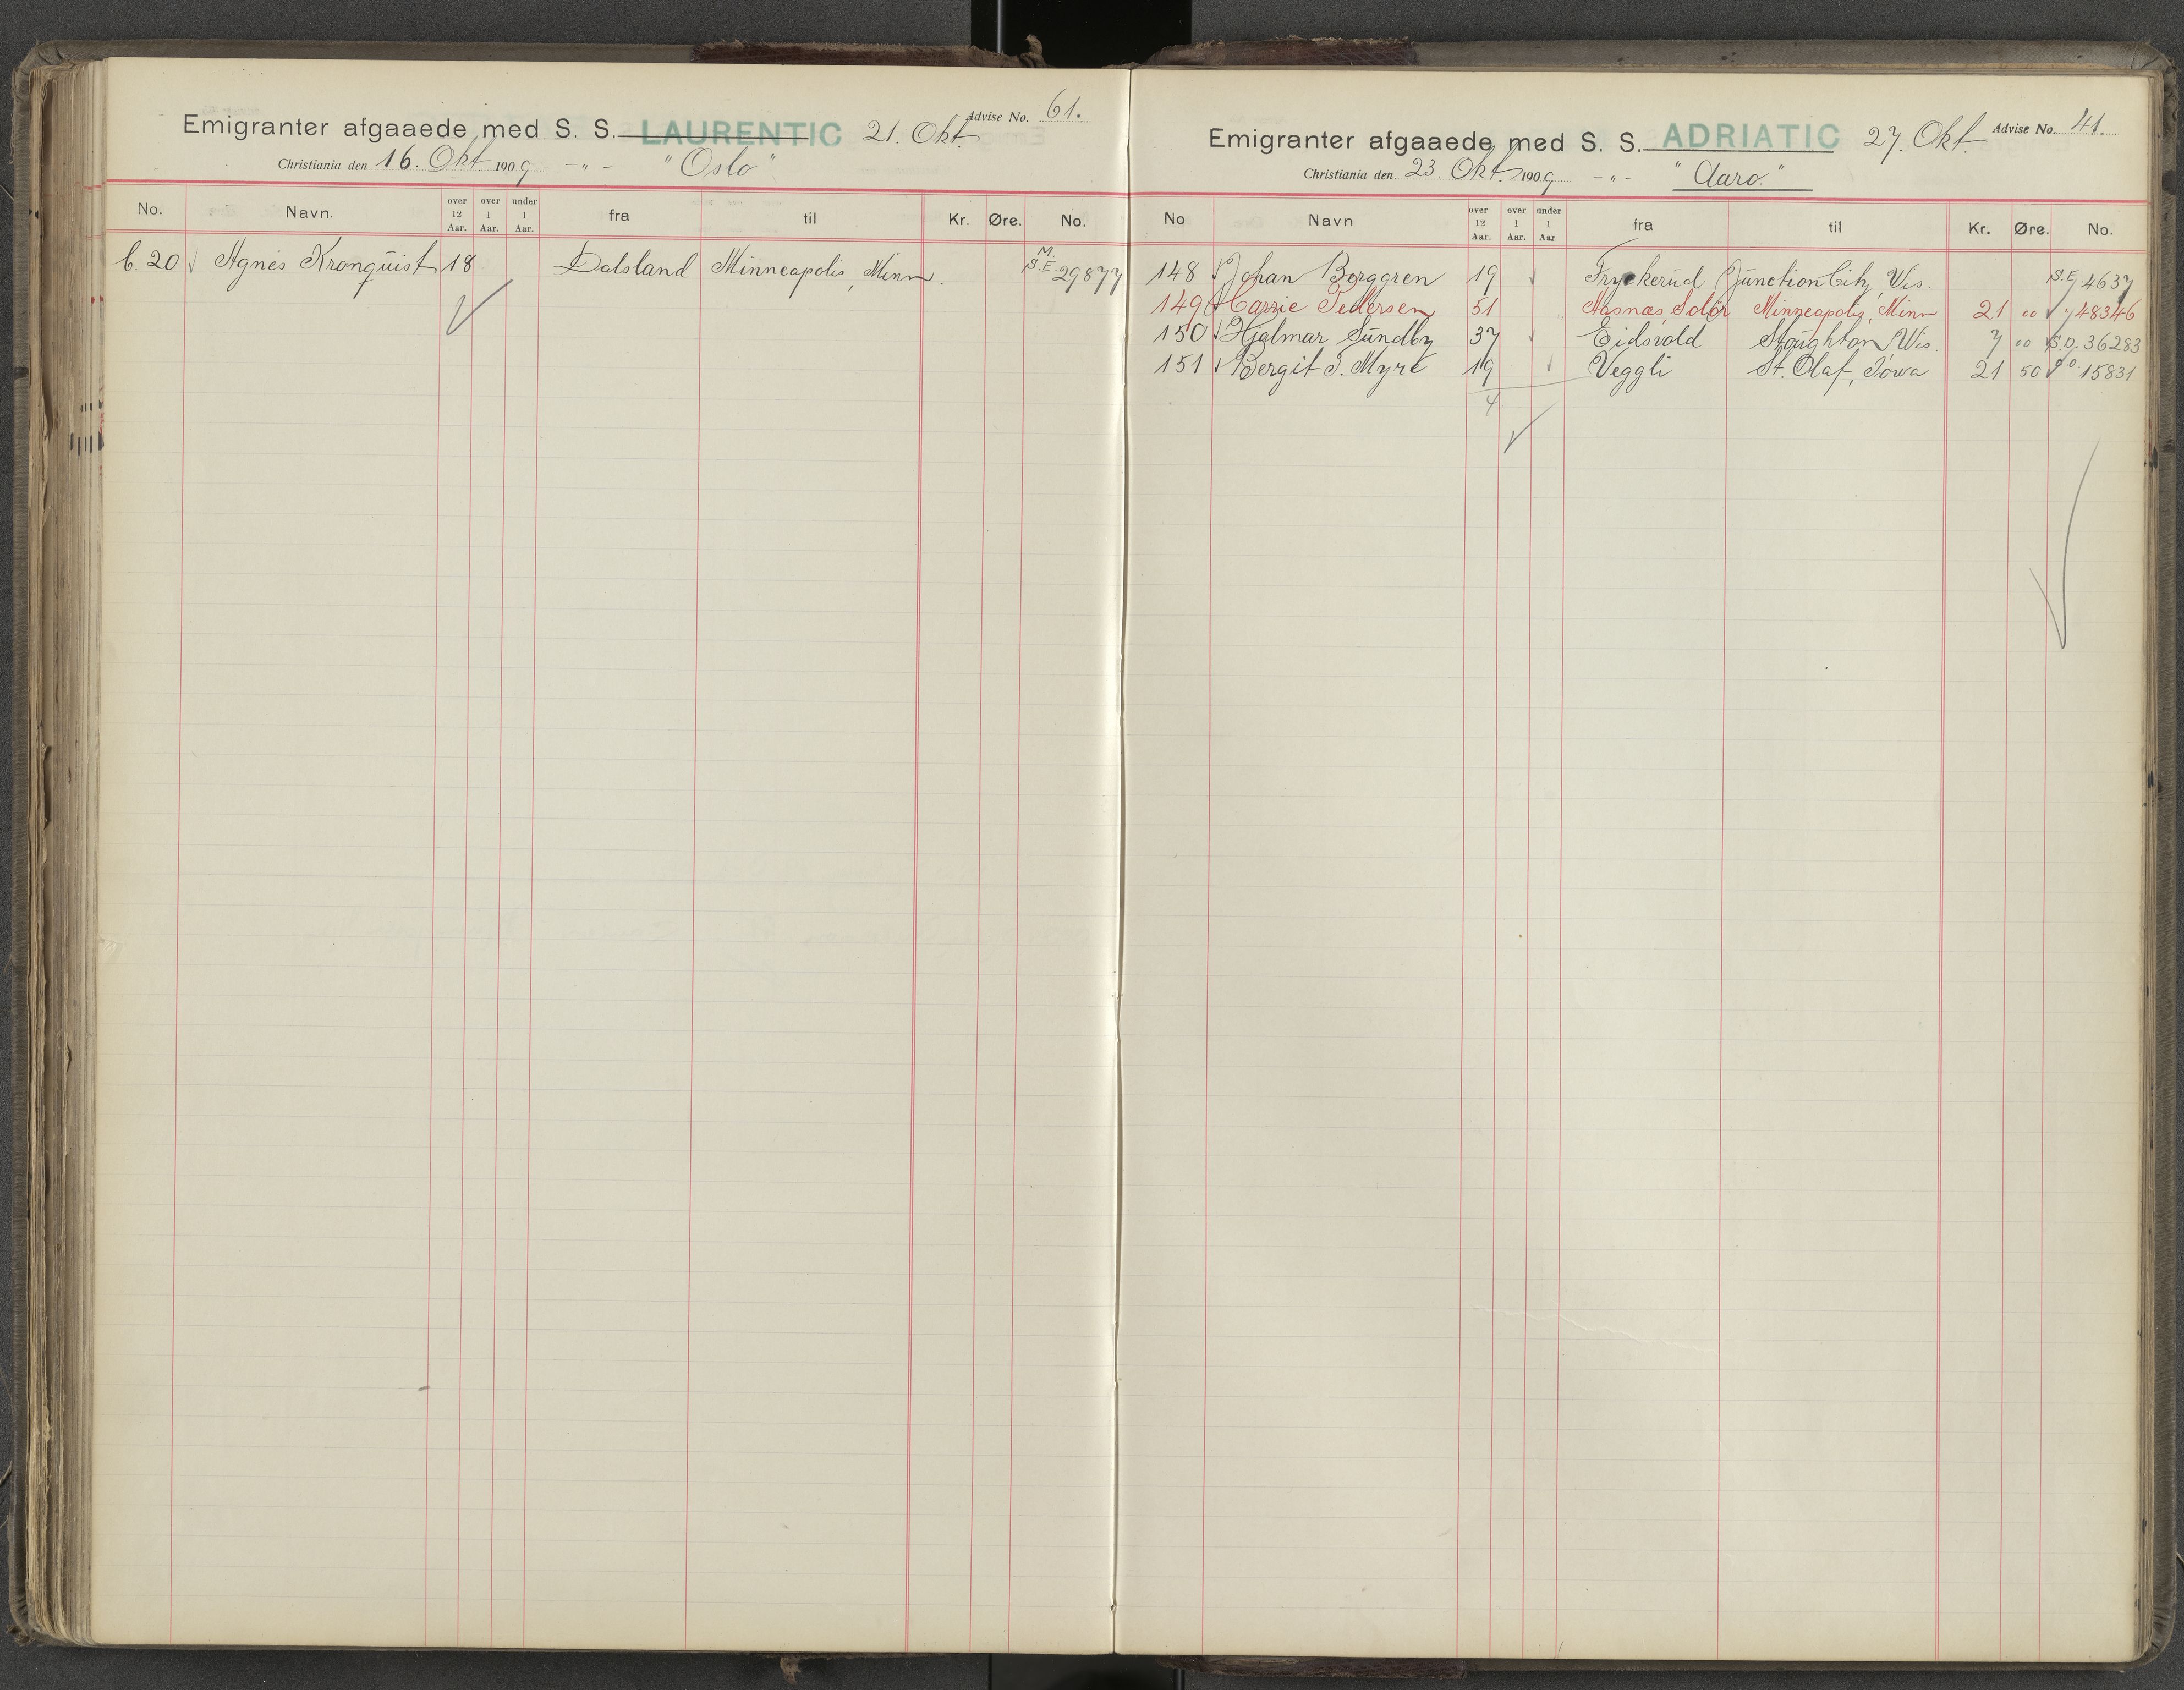 Emigranter afgaaede med S. S. LAURENTIC 21. Okt. Advise No. 61.
Christiania den 16. Okt. 1909 -„- "Oslo"
No. Navn. over 12 Aar. over 1 Aar. under 1 Aar. fra til Kr. Øre. No.
C. 20 Agnes Kronquist 18 Dalsland Minneapolis, Minn. M. S.E. 29877
Emigranter afgaaede med S. S. ADRIATIC 27. Okt. Advise No. 41.
Christiania den 23. Okt. 1909 -„- "Aaro."
No Navn over 12 Aar. over 1 Aar. under 1 Aar fra til Kr. Øre. No.
148 Johan Borggren 19 Fryckerud Junction City, Wis. 4637
149 Carrie Pedersen 51 Aasnæs, Solør Minneapolis, Minn 21 00 48346
150 Hjalmar Sundby 37 Eidsvold Stoughton Wis. 7 00 S.O. 36283
151 Bergit S. Myre 19 Veggli St. Olaf, Iowa 21 50 15831
4